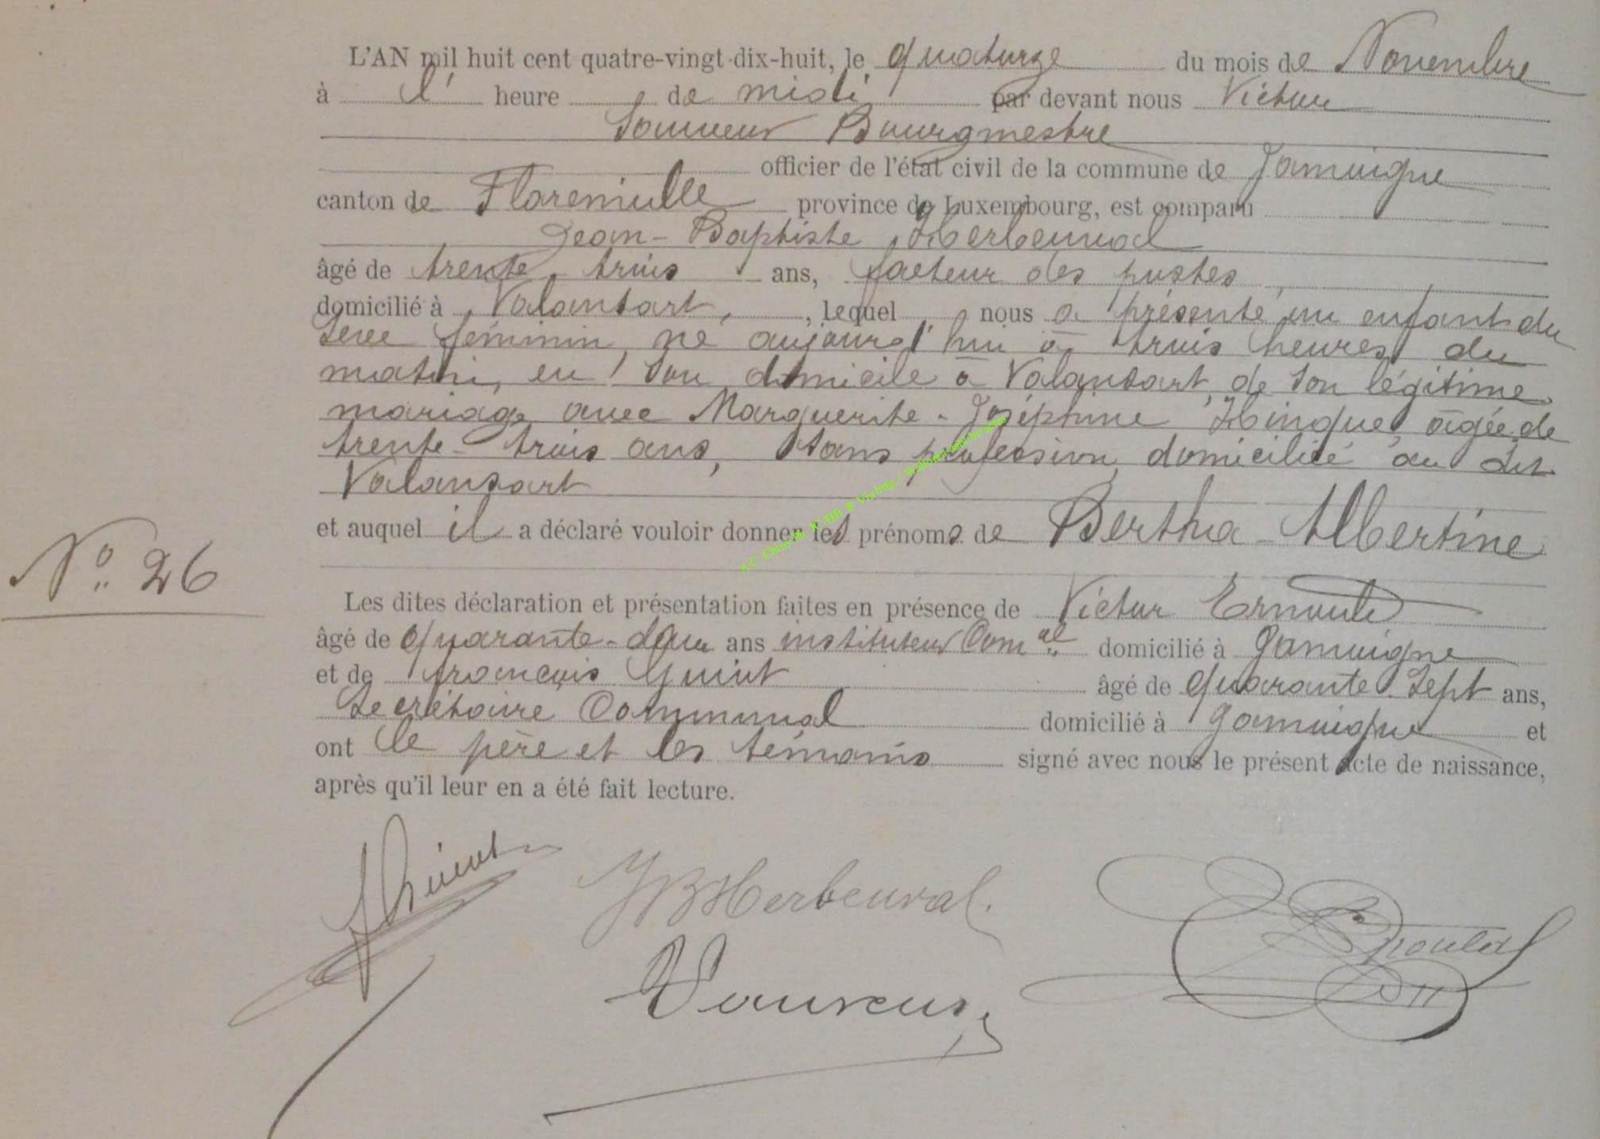 L'AN mil huit cent quatre-vingt-dix-huit, le quatorze du mois de Novembre
à l' heure de midi par devant nous Victor
Sauveur Bourgmestre
officier de l'état civil de la commune de Jamoigne
canton de Florenville province de Luxembourg, est comparu
Jean-Baptiste Herbeuval
âgé de trente-trois ans, facteur des postes,
domicilié à Valansart, , lequel nous a présenté un enfant du
sexe féminin, né aujourd'hui à trois heures du
matin, en son domicile à Valansart, de son légitime
mariage avec Marguerite-Joséphine Hinque, âgée de
trente-trois ans, sans profession, domiciliée au dit
Valansart
et auquel il a déclaré vouloir donner les prénoms de Bertha-Albertine
No. 26
Les dites déclaration et présentation faites en présence de Victor
âgé de quarante-deux ans instituteur Comal domicilié à Jamoigne
et de François Guiot âgé de quarante-sept ans,
Secrétaire Communal domicilié à Jamoigne et
ont le père et les témoins signé avec nous le présent acte de naissance,
après qu'il leur en a été fait lecture.
JBHerbeuval.
V Sauveur